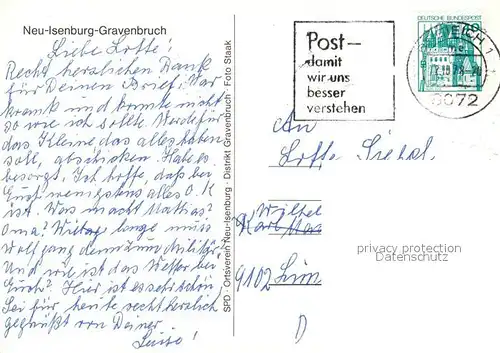 Neu-Isenburg-Gravenbruch
Liebe Lotte!
Recht herzlichen Dank
für Deinen Brief. War
krank und konnte nicht
so wie ich sollte. Werde für
das Kleine das alles haben
soll, abschicken. Habe es
besorgt. Ich hoffe, daß bei
Euch wenigstens alles O.K.
ist. Was macht Mathias?
Oma? lange
Wolfgang denn zum Militär.
Und wie ist das Wetter bei
Euch? Hier ist es sehr schön.
Sei für heute recht herzlich
gegrüßt von Deiner
Luise!
SPD · Ortsverein Neu-Isenburg · Distrikt Gravenbruch · Foto Staak
Post-
damit
wir uns
besser
verstehen
DEUTSCHE BUNDESPOST
EICH 1
6072
An
Lotte
Wilhel
Karl
9102
D
privacy protection
Datenschutz